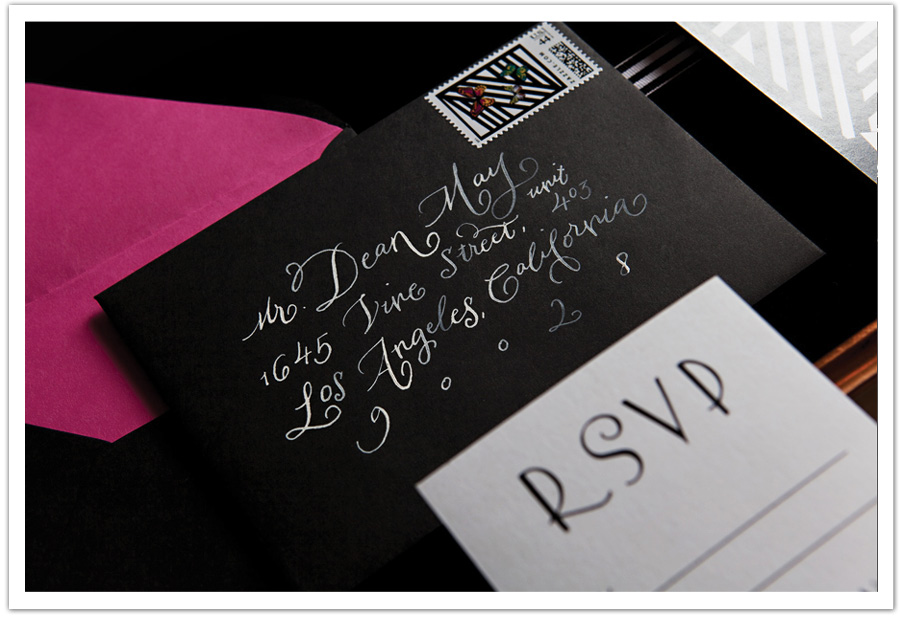 ZAZZLE.COM
Mr. Dean May
1645 Vine Street, unit 403
Los Angeles, California
9 0 0 2 8
RSVP